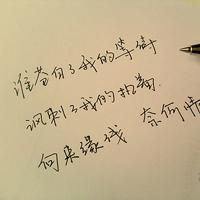 谁苍白了我的等待
讽刺了我的执着
向来缘浅 奈何情